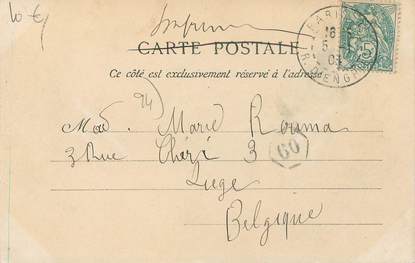 10 €
Imprimé
CARTE POSTALE
Ce côté est exclusivement réservé à l'adresse
PARIS
16
5
04
R. D'ENGH
5
94
Mad. Marie Rouma
3 Rue Chéri 3
60
Liege
Belgique